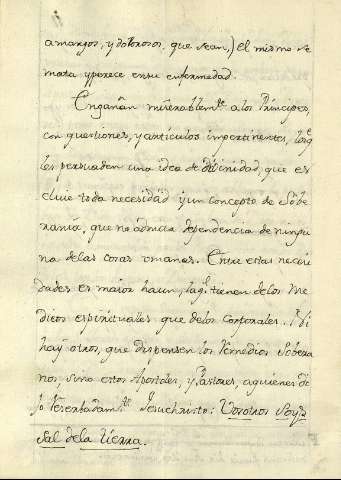 amargos, y dolorosos, que sean,) el mismo se
mata y perece en su enfermedad.
Engañan miserablem.te a los Principes,
con questiones, y articulos impertinentes, los q.e
les persuaden una idea de divinidad, que es
cluie toda necesidad y un concepto de Sobe
rania, que no admita dependencia de ningu
na delas cosas umanas. Entre estas necesi
dades es maior haun, la q.e tienen delos Me
dicos espirituales que delos corporales.
hay otros, que dispensen los Remedios Sobera
nos, sino estos Apostoles, y Pastores, a quienes di
jo Jesuchristo: Vosotros Soys
Sal dela tierra.